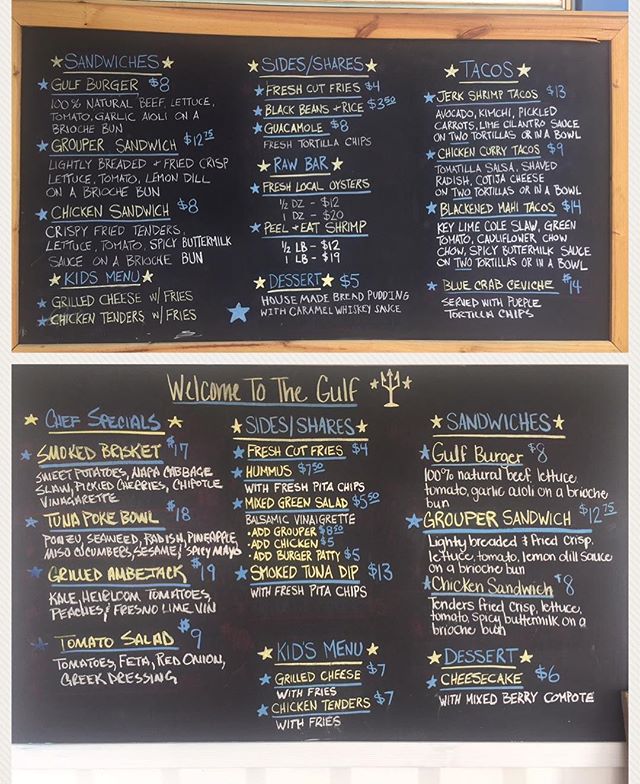 SANDWICHES
GULF BURGER $8
100% NATURAL BEEF, LETTUCE,
TOMATO, GARLIC AIOLI ON A
BRIOCHE BUN
GROUPER SANDWICH $12.75
LIGHTLY BREADED + FRIED CRISP
LETTUCE, TOMATO, LEMON DILL
ON A BRIOCHE BUN
CHICKEN SANDWICH $8
CRISPY FRIED TENDERS,
LETTUCE, TOMATO, SPICY BUTTERMILK
SAUCE ON A BRIOCHE BUN
KIDS MENU
GRILLED CHEESE W/ FRIES
CHICKEN TENDERS W/ FRIES
SIDES/SHARES
FRESH CUT FRIES $4
BLACK BEANS + RICE $3.50
GUACAMOLE $8
FRESH TORTILLA CHIPS
RAW BAR
FRESH LOCAL OYSTERS
1/2 DZ - $12
1 DZ - $20
PEEL + EAT SHRIMP
1/2 LB - $12
1 LB - $19
DESSERT $5
HOUSE MADE BREAD PUDDING
WITH CARAMEL WHISKEY SAUCE
TACOS
JERK SHRIMP TACOS $13
AVOCADO, KIMCHI, PICKLED
CARROTS, LIME CILANTRO SAUCE
ON TWO TORTILLAS OR IN A BOWL
CHICKEN CURRY TACOS $9
TOMATILLA SALSA, SHAVED
RADISH, COTIJA CHEESE
ON TWO TORTILLAS OR IN A BOWL
BLACKENED MAHI TACOS $14
KEY LIME COLE SLAW, GREEN
TOMATO, CAULIFLOWER CHOW
CHOW, SPICY BUTTERMILK SAUCE
ON TWO TORTILLAS OR IN A BOWL
BLUE CRAB CEVICHE $14
SERVED WITH PURPLE
TORTILLA CHIPS
Welcome To The Gulf
CHEF SPECIALS
SMOKED BRISKET $17
SWEET POTATOES, NAPA CABBAGE
SLAW, PICKLED CHERRIES, CHIPOTLE
VINAGARETTE
TUNA POKE BOWL $18
PONZU, SEAWEED, RADISH, PINEAPPLE
MISO CUCUMBERS, SESAME/ SPICY MAYO
GRILLED AMBEJACK $19
KALE, HEIRLOOM TOMATOES,
PEACHES/ FRESNO LIME VIN
TOMATO SALAD $9
TOMATOES, FETA, RED ONION,
GREEK DRESSING
SIDES/SHARES
FRESH CUT FRIES $4
HUMMUS $7.50
WITH FRESH PITA CHIPS
MIXED GREEN SALAD $5.50
BALSAMIC VINAIGRETTE
• ADD GROUPER $8.50
• ADD CHICKEN $5
• ADD BURGER PATTY $5
SMOKED TUNA DIP $13
WITH FRESH PITA CHIPS
KID'S MENU
GRILLED CHEESE $7
WITH FRIES
CHICKEN TENDERS $7
WITH FRIES
SANDWICHES
Gulf Burger $8
100% natural beef, lettuce
tomato, garlic aioli on a brioche
bun
GROUPER SANDWICH $12.75
Lightly breaded & fried crisp.
lettuce, tomato, lemon dill sauce
on a brioche bun
Chicken Sandwich $8
Tenders fried crisp, lettuce,
tomato, spicy buttermilk on a
brioche bun
DESSERT
CHEESECAKE $6
WITH MIXED BERRY COMPOTE